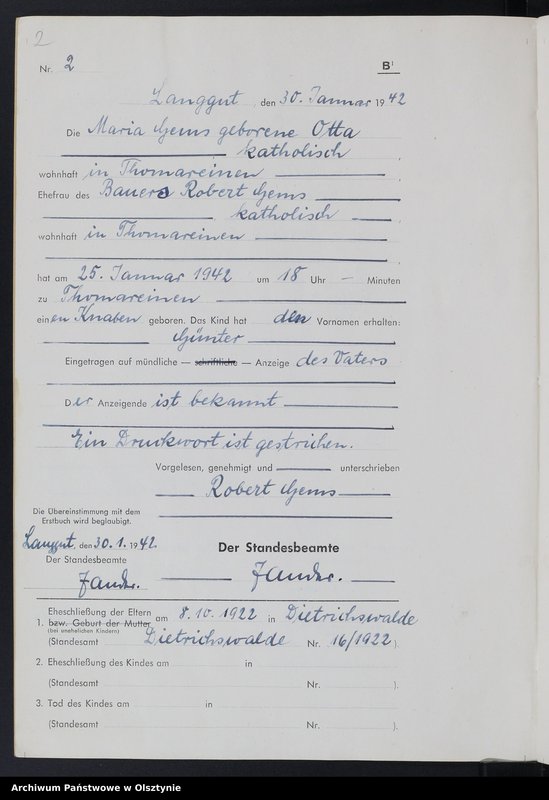 2
Nr. 2 B¹
Langgut, den 30. Januar 1942
Die Maria Gems geborene Otta
katholisch,
wohnhaft in Thomareinen,
Ehefrau des Bauers Robert Gems
katholisch,
wohnhaft in Thomareinen
hat am 25. Januar 1942 um 18 Uhr — Minuten
zu Thomareinen
einen Knaben geboren. Das Kind hat den Vornamen erhalten:
Günter
Eingetragen auf mündliche — schriftliche — Anzeige des Vaters
Der Anzeigende ist bekannt
Ein Druckwort ist gestrichen.
Vorgelesen, genehmigt und unterschrieben
Robert Gems
Die Übereinstimmung mit dem
Erstbuch wird beglaubigt.
Langgut, den 30.1.1942
Der Standesbeamte
Der Standesbeamte
Zander.
Zander.
Eheschließung der Eltern
1. bzw. Geburt der Mutter am 8.10.1922 in Dietrichswalde
(bei unehelichen Kindern)
(Standesamt Dietrichswalde Nr. 16/1922).
2. Eheschließung des Kindes am in
(Standesamt Nr. ).
3. Tod des Kindes am in
(Standesamt Nr. ).
Archiwum Państwowe w Olsztynie